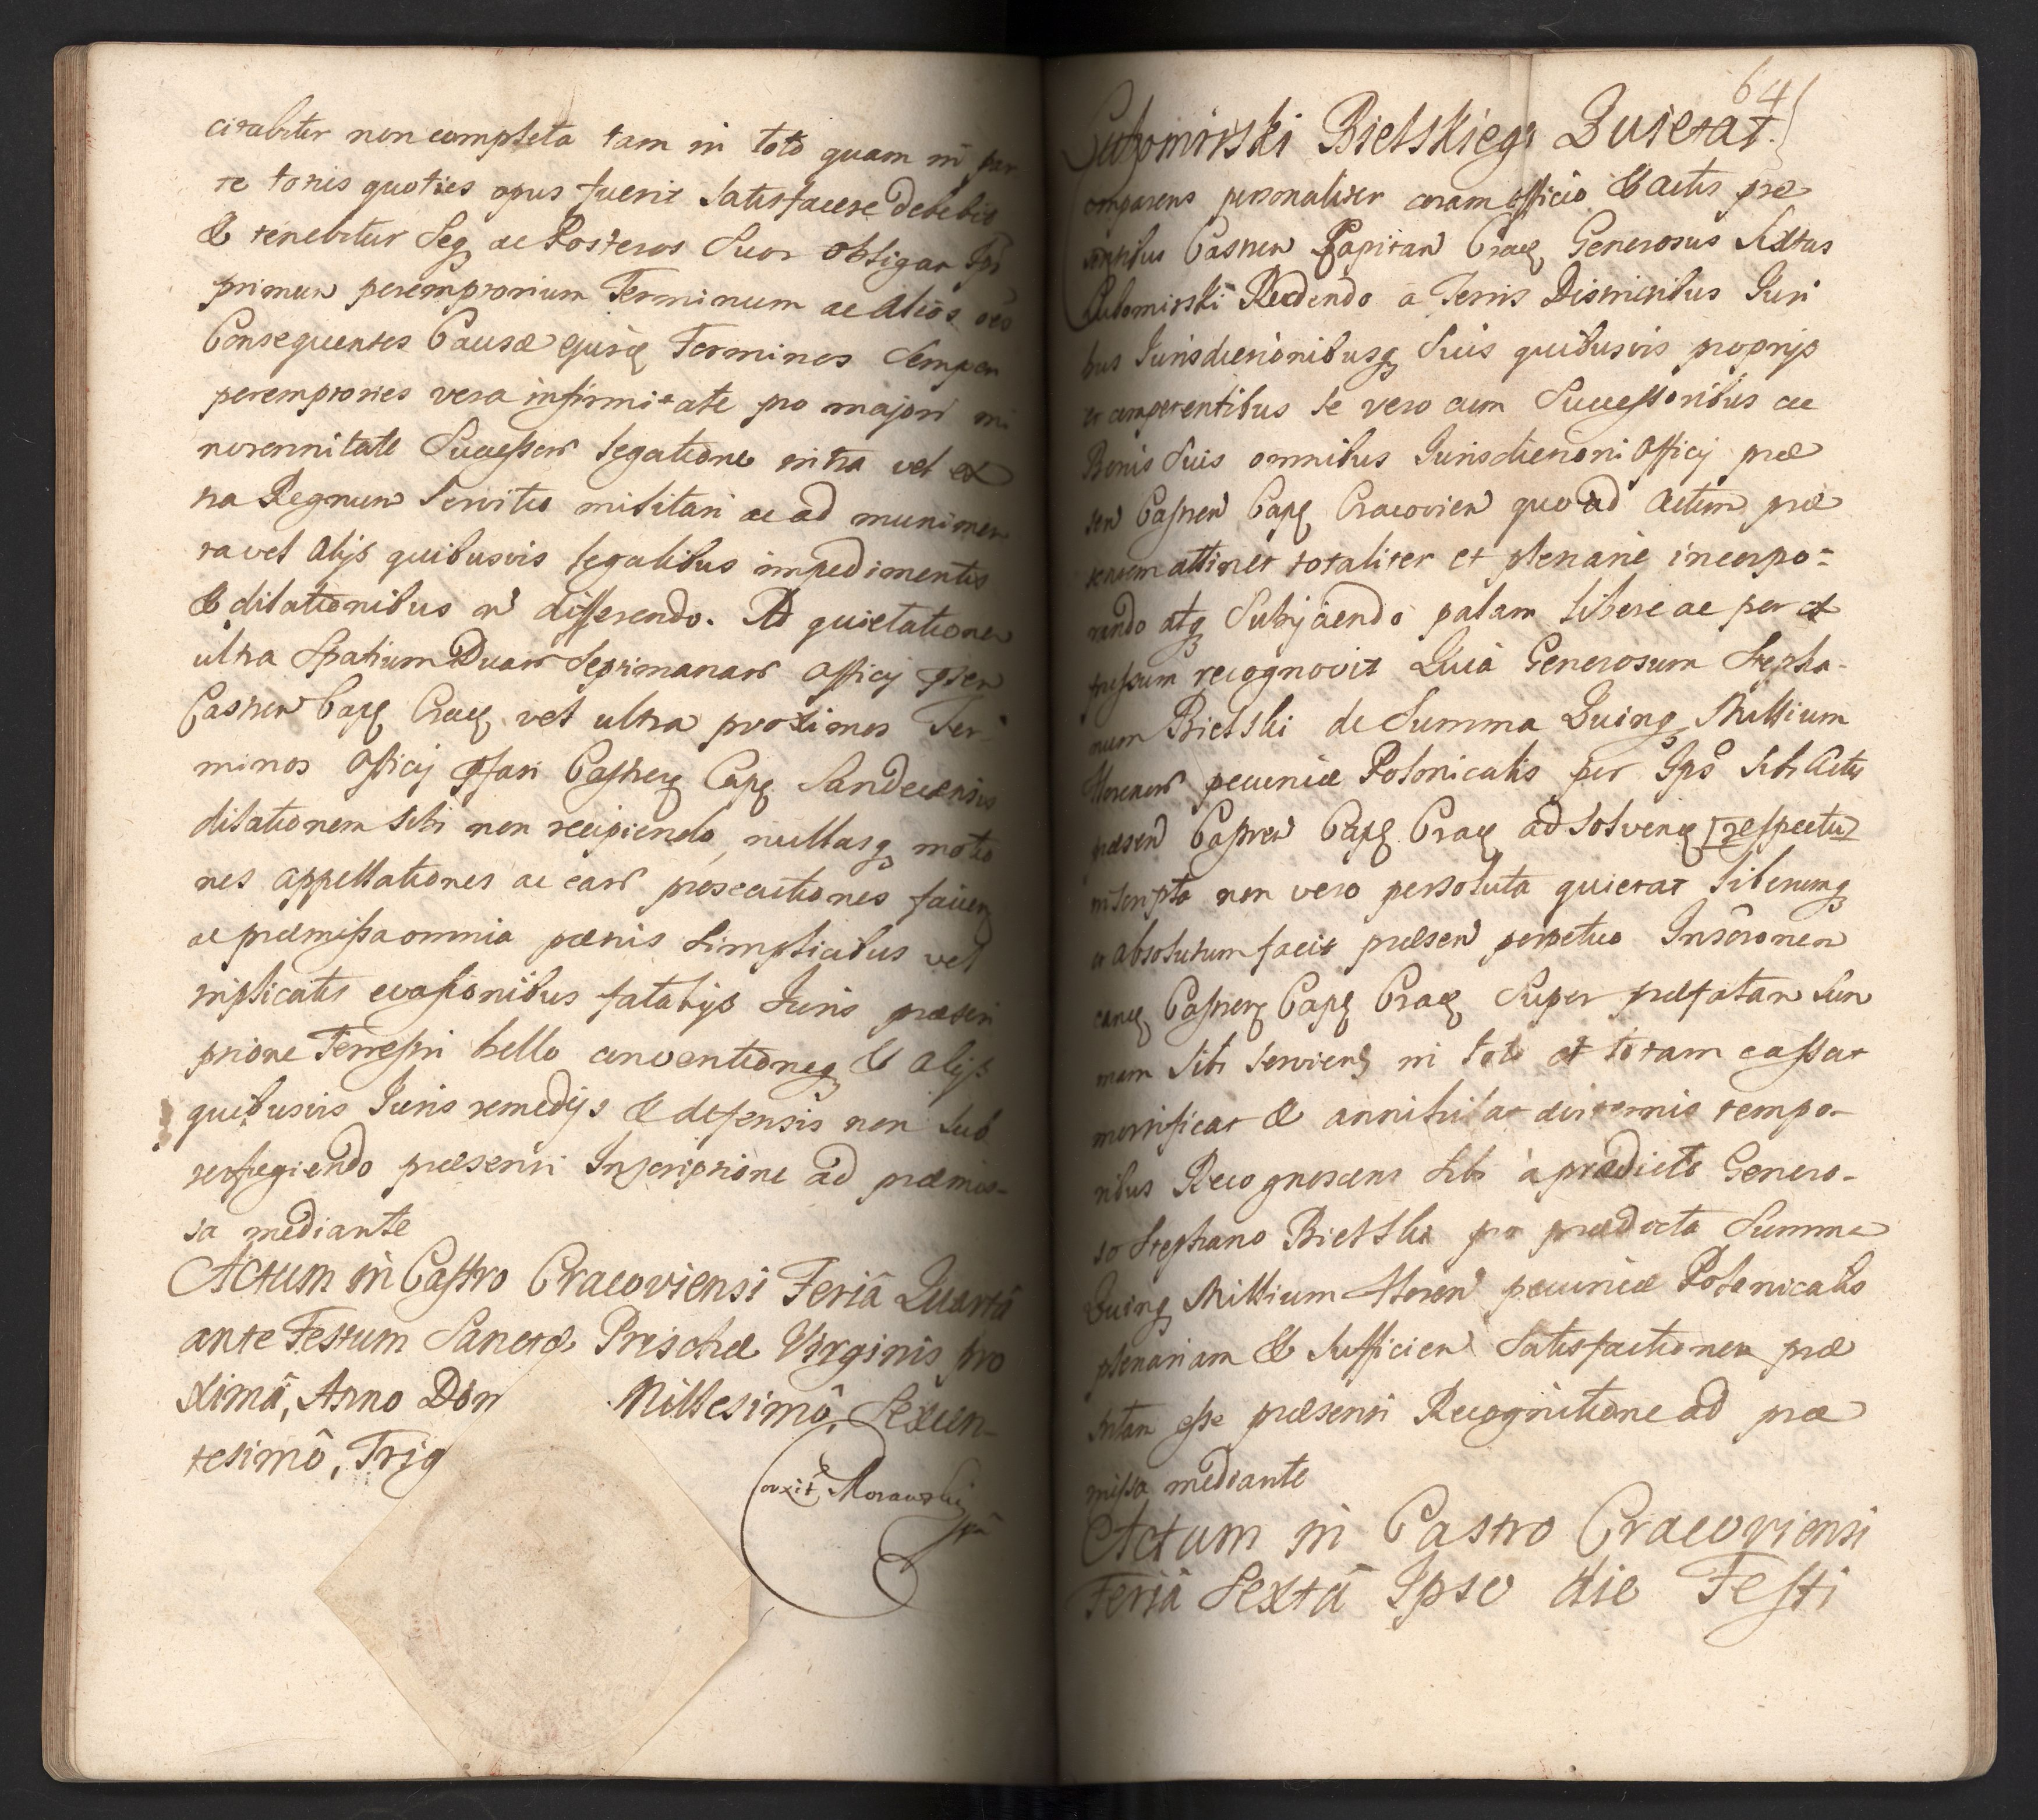 citabitur non completa tam in toto quam in par
te toties quoties opus fuerit satisfacere debebit
& tenebitur Seq ac Posteros Suos obligat
primum peremptorium Terminum ac alios
Consequentes Causæ ejusq Terminos semper
peremptories vera infirmitate pro majori mi
norennitate Successor legatione intra vel ex
tra Regnum servitio militari ac ad munimen
ta vel alijs quibusvis legalibus impedimentis
& dilationibus n differendo. Ad quietationem
ultra Spatium Duar Septimanar Officij
Castren Capq Cracq vel ultra proximos Ter-
minos Officij Castrenq Capq Sandecensis
dilationem sibi non recipiendo, nullasq motio
nes appellationes ac ear prosecutiones
ac præmissa omnia pænis simplicibus vel
triplicatis evasionibus fatalijs Juris præscri
ptione Terrestri bello conventioneq & alijs
quibusvis Juris remedijs & defensis non sub
terfugiendo præsenti Inscriptione ad præmis-
sa mediante
Actum in Castro Cracoviensi Feriâ Quartâ
ante Festum Sanctæ Prischæ Virginis pro
ximâ, Anno Dom Millesimô, Sexcen-
tesimô, Trig
Morawski
64
Lubomirski Bielskiego Quietat.
omparens personaliter coram officio & actis præ
sentibus Castren Capitan Cracq Generosus Sixtus
Lubomirski Recedendo a Terris Districtibus Juri
bus Jurisdictionibusq Suis quibusvis proprijs
et competentibus se vero cum Successoribus ac
Bonis Suis omnibus Jurisdictioni Officij præ
sen Castren Capq Cracovien quo ad Actum præ
sentem attinet totaliter et plenarie incorpo=
rando atq Subijciendo palam libere ac per ex
pressum recognovit Quia Generosum Stepha-
num Bielski de Summa Quinq Millium
florenor pecuniæ Polonicalis per Ips sibi Actis
præsen Castren Capq Cracq ad solvenq [respectu]
inscripta non vero persoluta quietat liberumq
et absolutum facit præsen perpetuo Inscronem
eamq Castrenq Capq Cracq Super præfatam Sum
mam sibi servien in toto et totam cassat
mortificat & annihilat diuternis tempo-
ribus Recognoscens sibi a prædicto Genero-
so Stephano Bielski pro prædicta Summa
Quinq Millium floren pecuniæ Polonicalis
plenariam & sufficien satisfactionem præ
stitam esse præsenti Recognitione ad præ
missa mediante
Actum in Castro Cracoviensi
Feriâ Sextâ Ipso die Festi